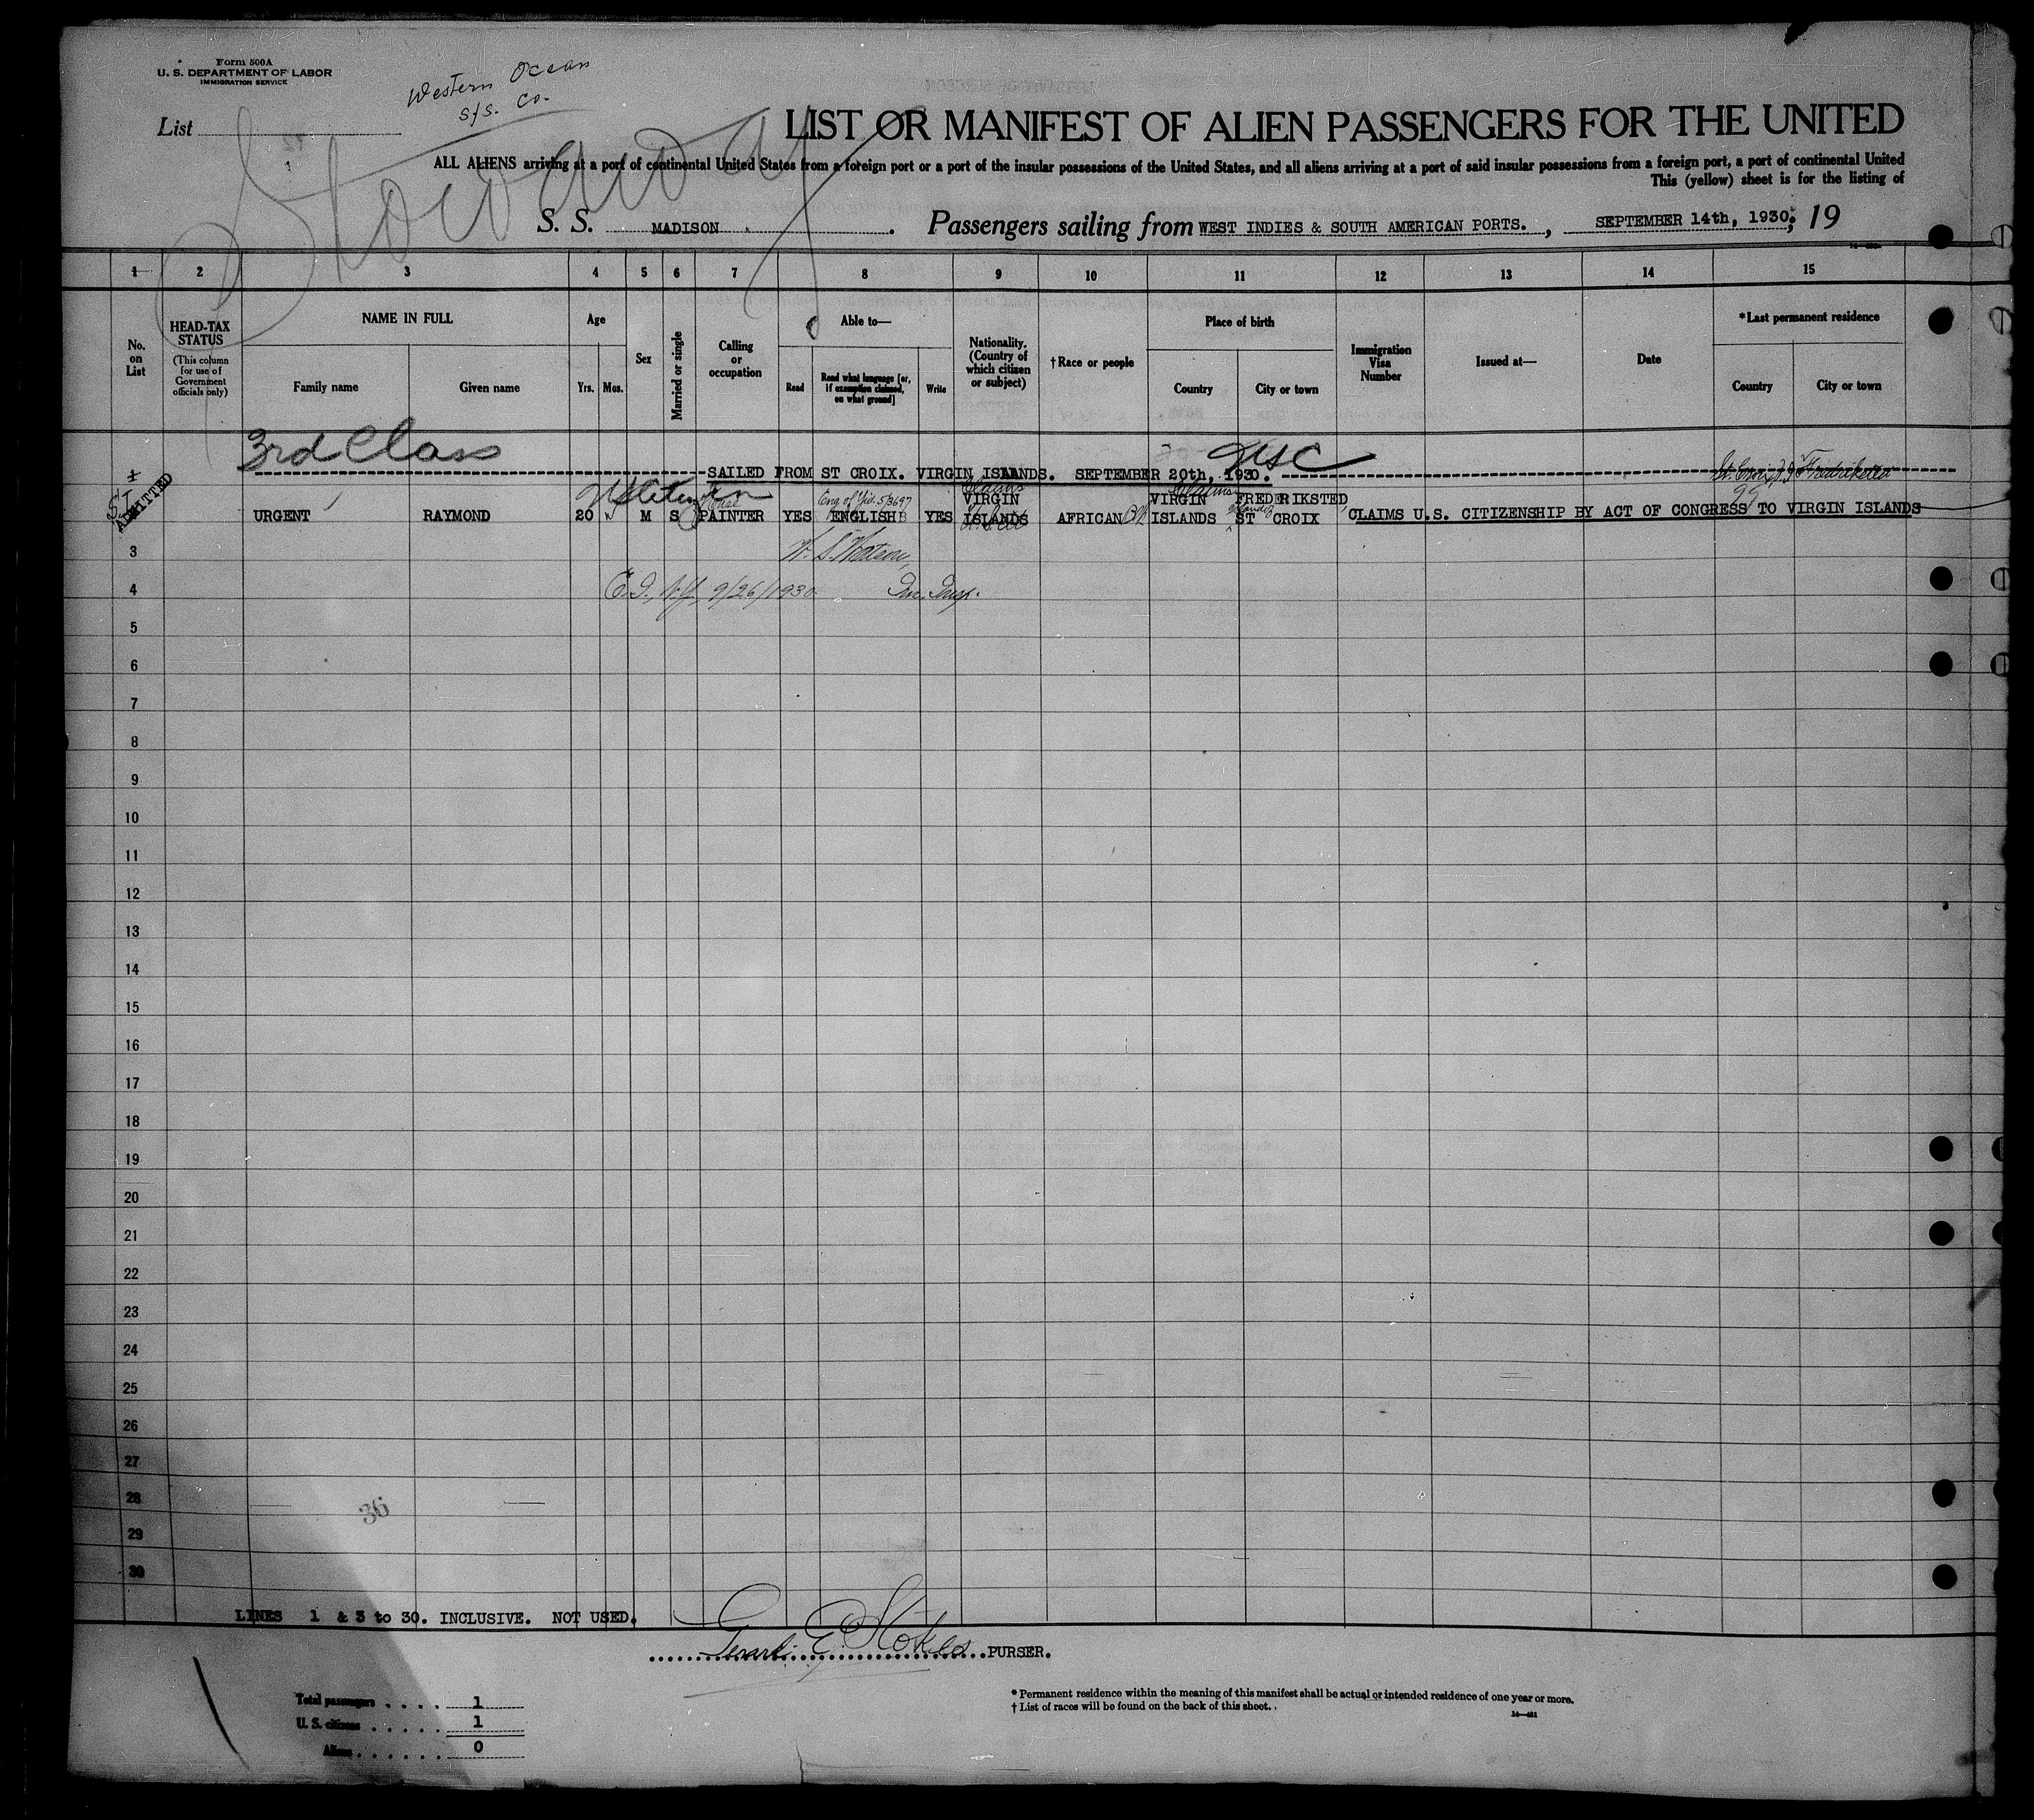 Form 500A
U. S. DEPARTMENT OF LABOR
IMMIGRATION SERVICE
Western Ocean
S/S. Co.
List
Stowaway
LIST OR MANIFEST OF ALIEN PASSENGERS FOR THE UNITED
ALL ALIENS arriving at a port of continental United States from a foreign port or a port of the insular possessions of the United States, and all aliens arriving at a port of said insular possessions from a foreign port, a port of continental United
This (yellow) sheet is for the listing of
S. S. MADISON . Passengers sailing from WEST INDIES & SOUTH AMERICAN PORTS. , SEPTEMBER 14th, 1930; 19
1 2 3 4 5 6 7 8 9 10 11 12 13 14 15
No. on List
HEAD-TAX STATUS
(This column for use of Government officials only)
NAME IN FULL
Family name Given name
Age
Yrs. Mos.
Sex
Married or single
Calling or occupation
Able to—
Read
Read what language [or, if exemption claimed, on what ground]
Write
Nationality. (Country of which citizen or subject)
†Race or people
Place of birth
Country City or town
Immigration Visa Number
Issued at—
Date
*Last permanent residence
Country City or town
3rd Class
SAILED FROM ST CROIX. VIRGIN ISLANDS. SEPTEMBER 20th, 1930.
USC
ADMITTED
URGENT RAYMOND 20 M S PAINTER YES ENGLISH YES VIRGIN ISLANDS AFRICAN VIRGIN ISLANDS FREDERIKSTED ST CROIX CLAIMS U.S. CITIZENSHIP BY ACT OF CONGRESS TO VIRGIN ISLANDS
3
W. S. Watson,
4
9/26/1930 Insp.
5
6
7
8
9
10
11
12
13
14
15
16
17
18
19
20
21
22
23
24
25
26
27
28
36
29
30
LINES 1 & 3 to 30. INCLUSIVE. NOT USED.
E. Stokes PURSER.
Total passengers . . . . 1
U. S. citizens . . . . . 1
Aliens . . . . . . 0
* Permanent residence within the meaning of this manifest shall be actual or intended residence of one year or more.
† List of races will be found on the back of this sheet.
14—421